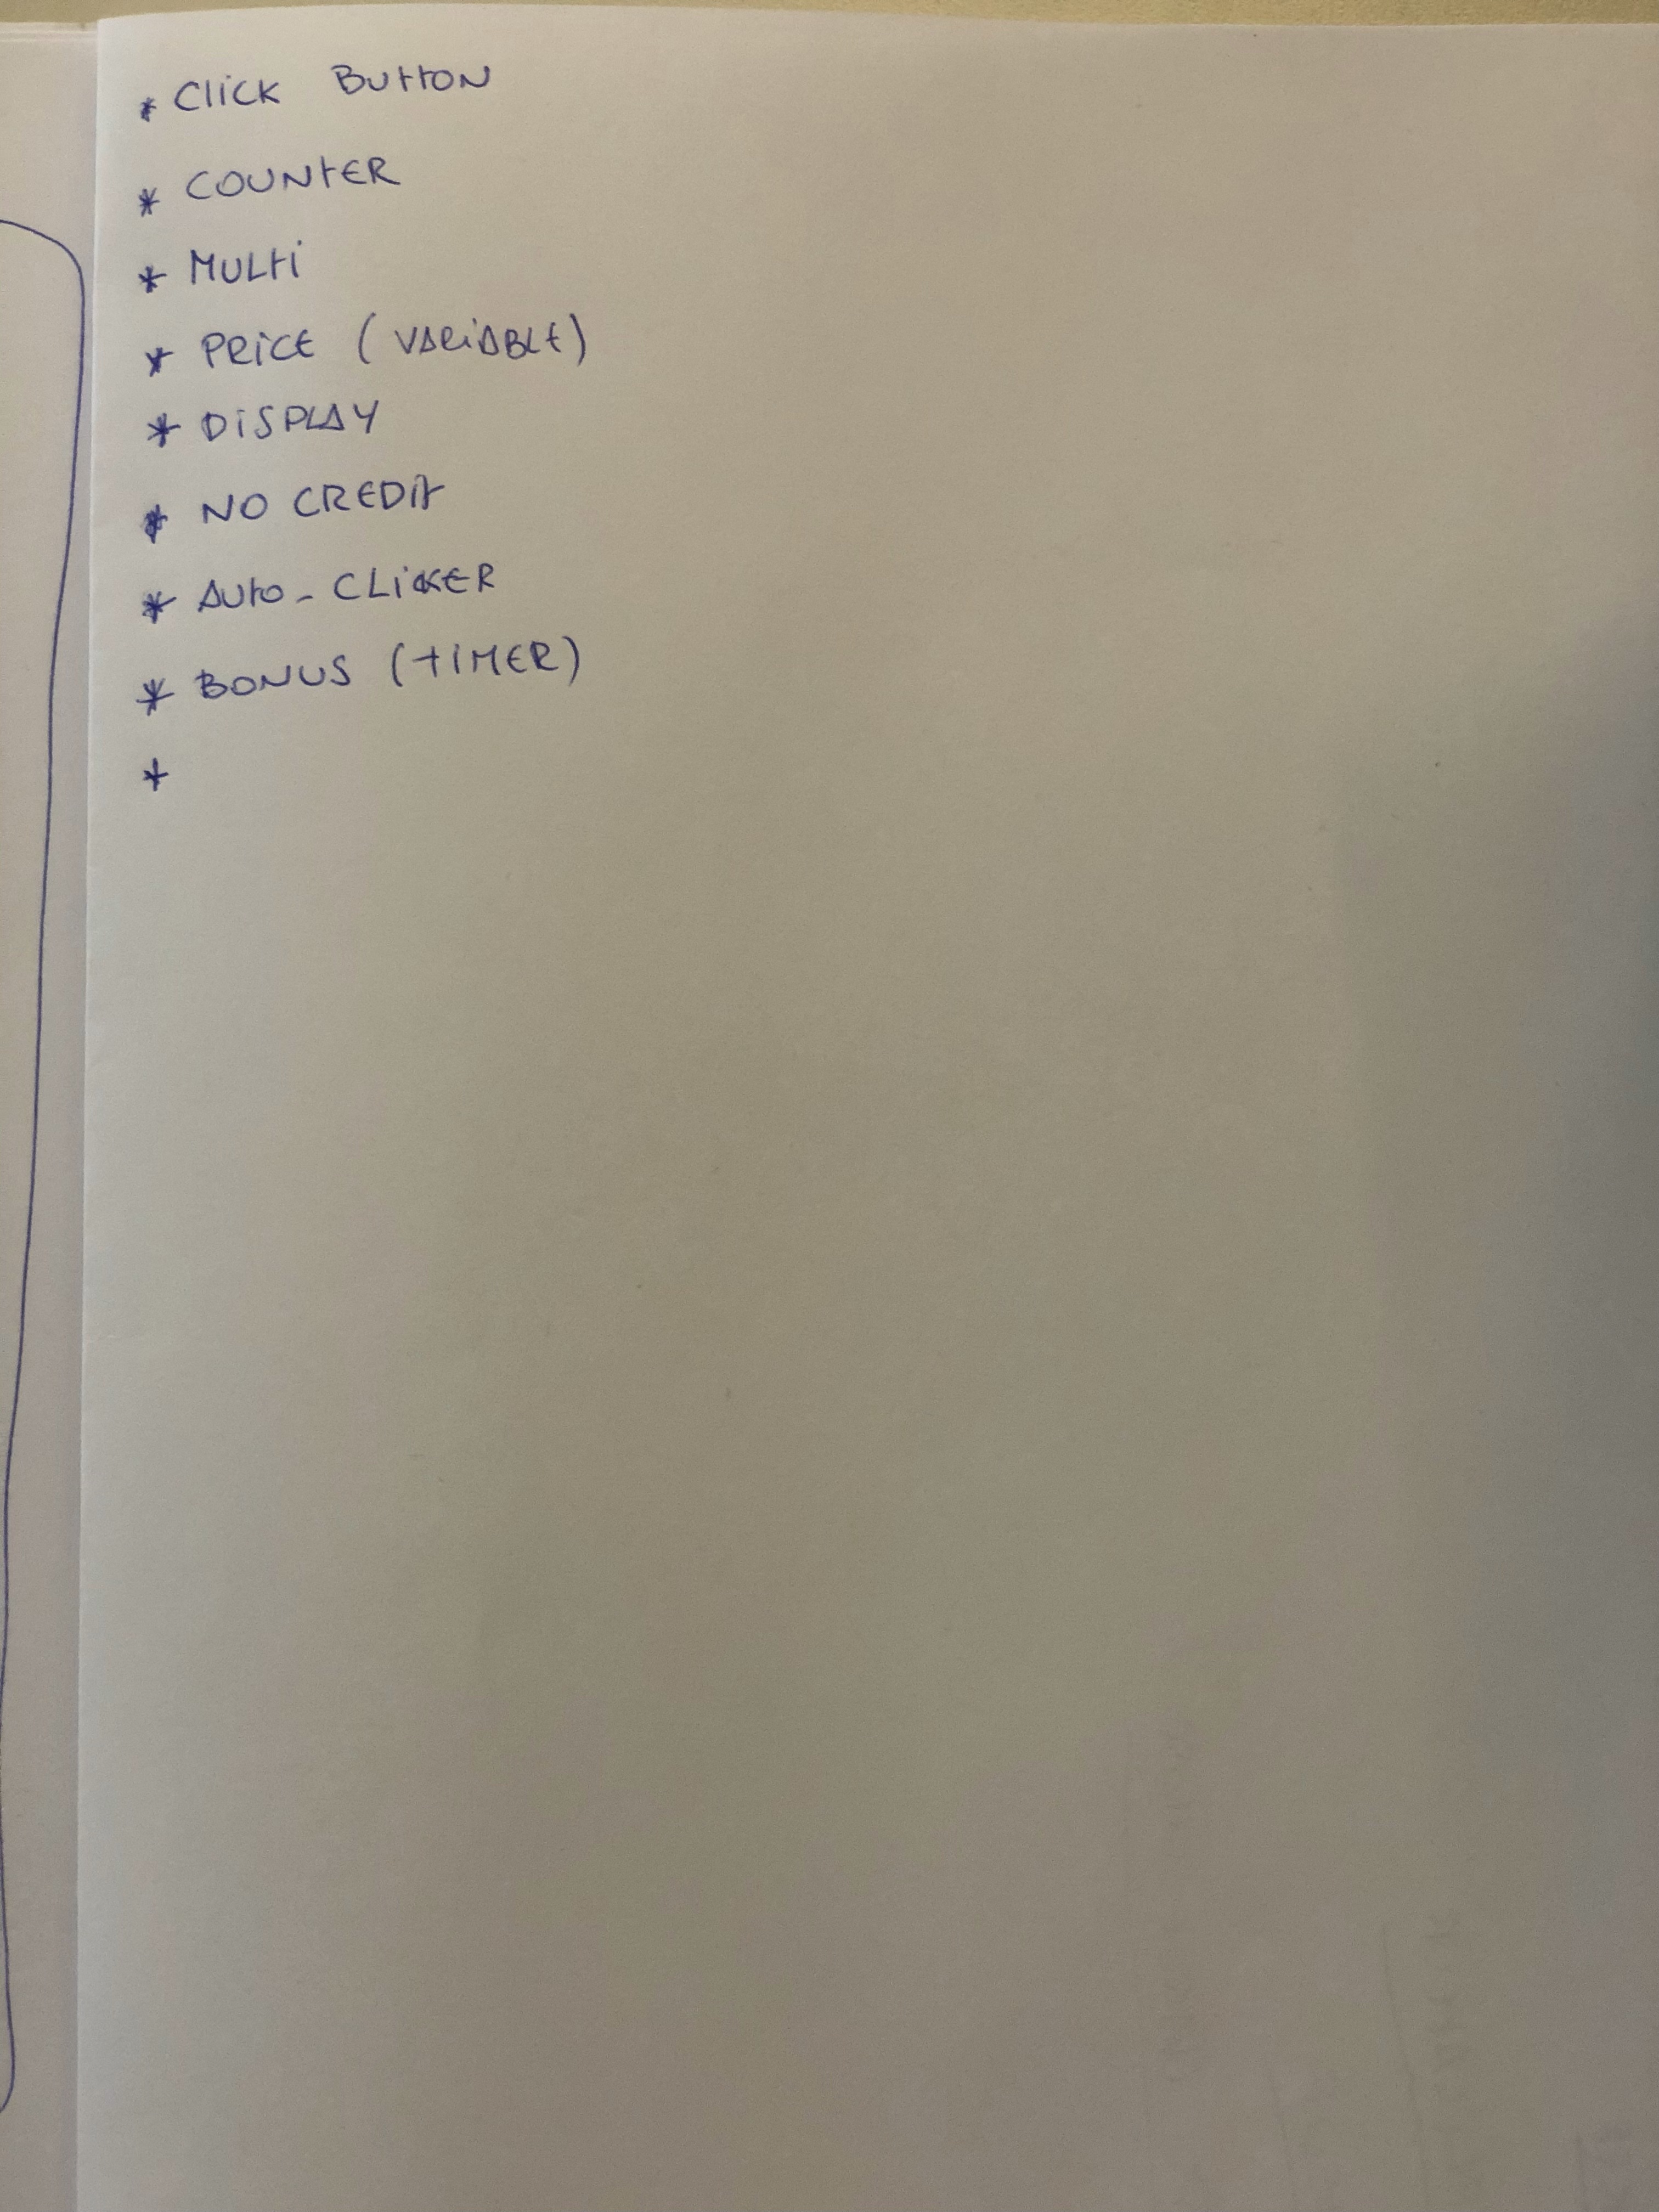 * Click Button
* COUNTER
* MULTI
* PRICE (VARIABLE)
* DISPLAY
* NO CREDIT
* AUTO-CLICKER
* BONUS (TIMER)
*